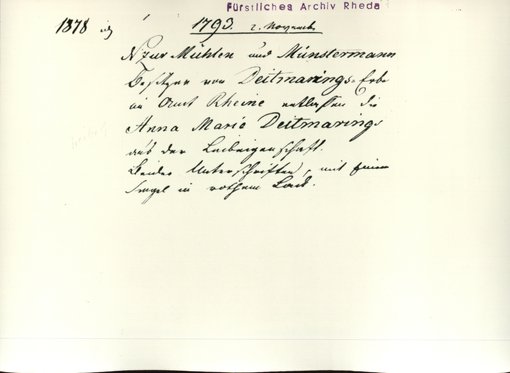 Fürstliches Archiv Rheda
1878
1793. 2. November
N zur Mühlen und Münstermann
Besitzer von Deitmarings-Erbe
im Amt Rheine entlassen die
Anna Maria Deitmarings
aus der Leibeigenschaft.
Beider Unterschriften, mit
Siegel in rothem Lack.